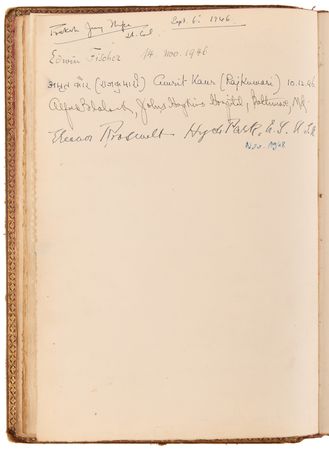 Prakash Jung Sept. 6. 1946.
Lt. Col
Edwin Fischer 14. Nov. 1946
अमृत कौर (राजकुमारी) Amrit Kaur (Rajkumari) 10.12.46
Alfred Blalock, Johns Hopkins Hospital, Baltimore, Md.
Eleanor Roosevelt Hyde Park, U.S.A.
Nov. 1948